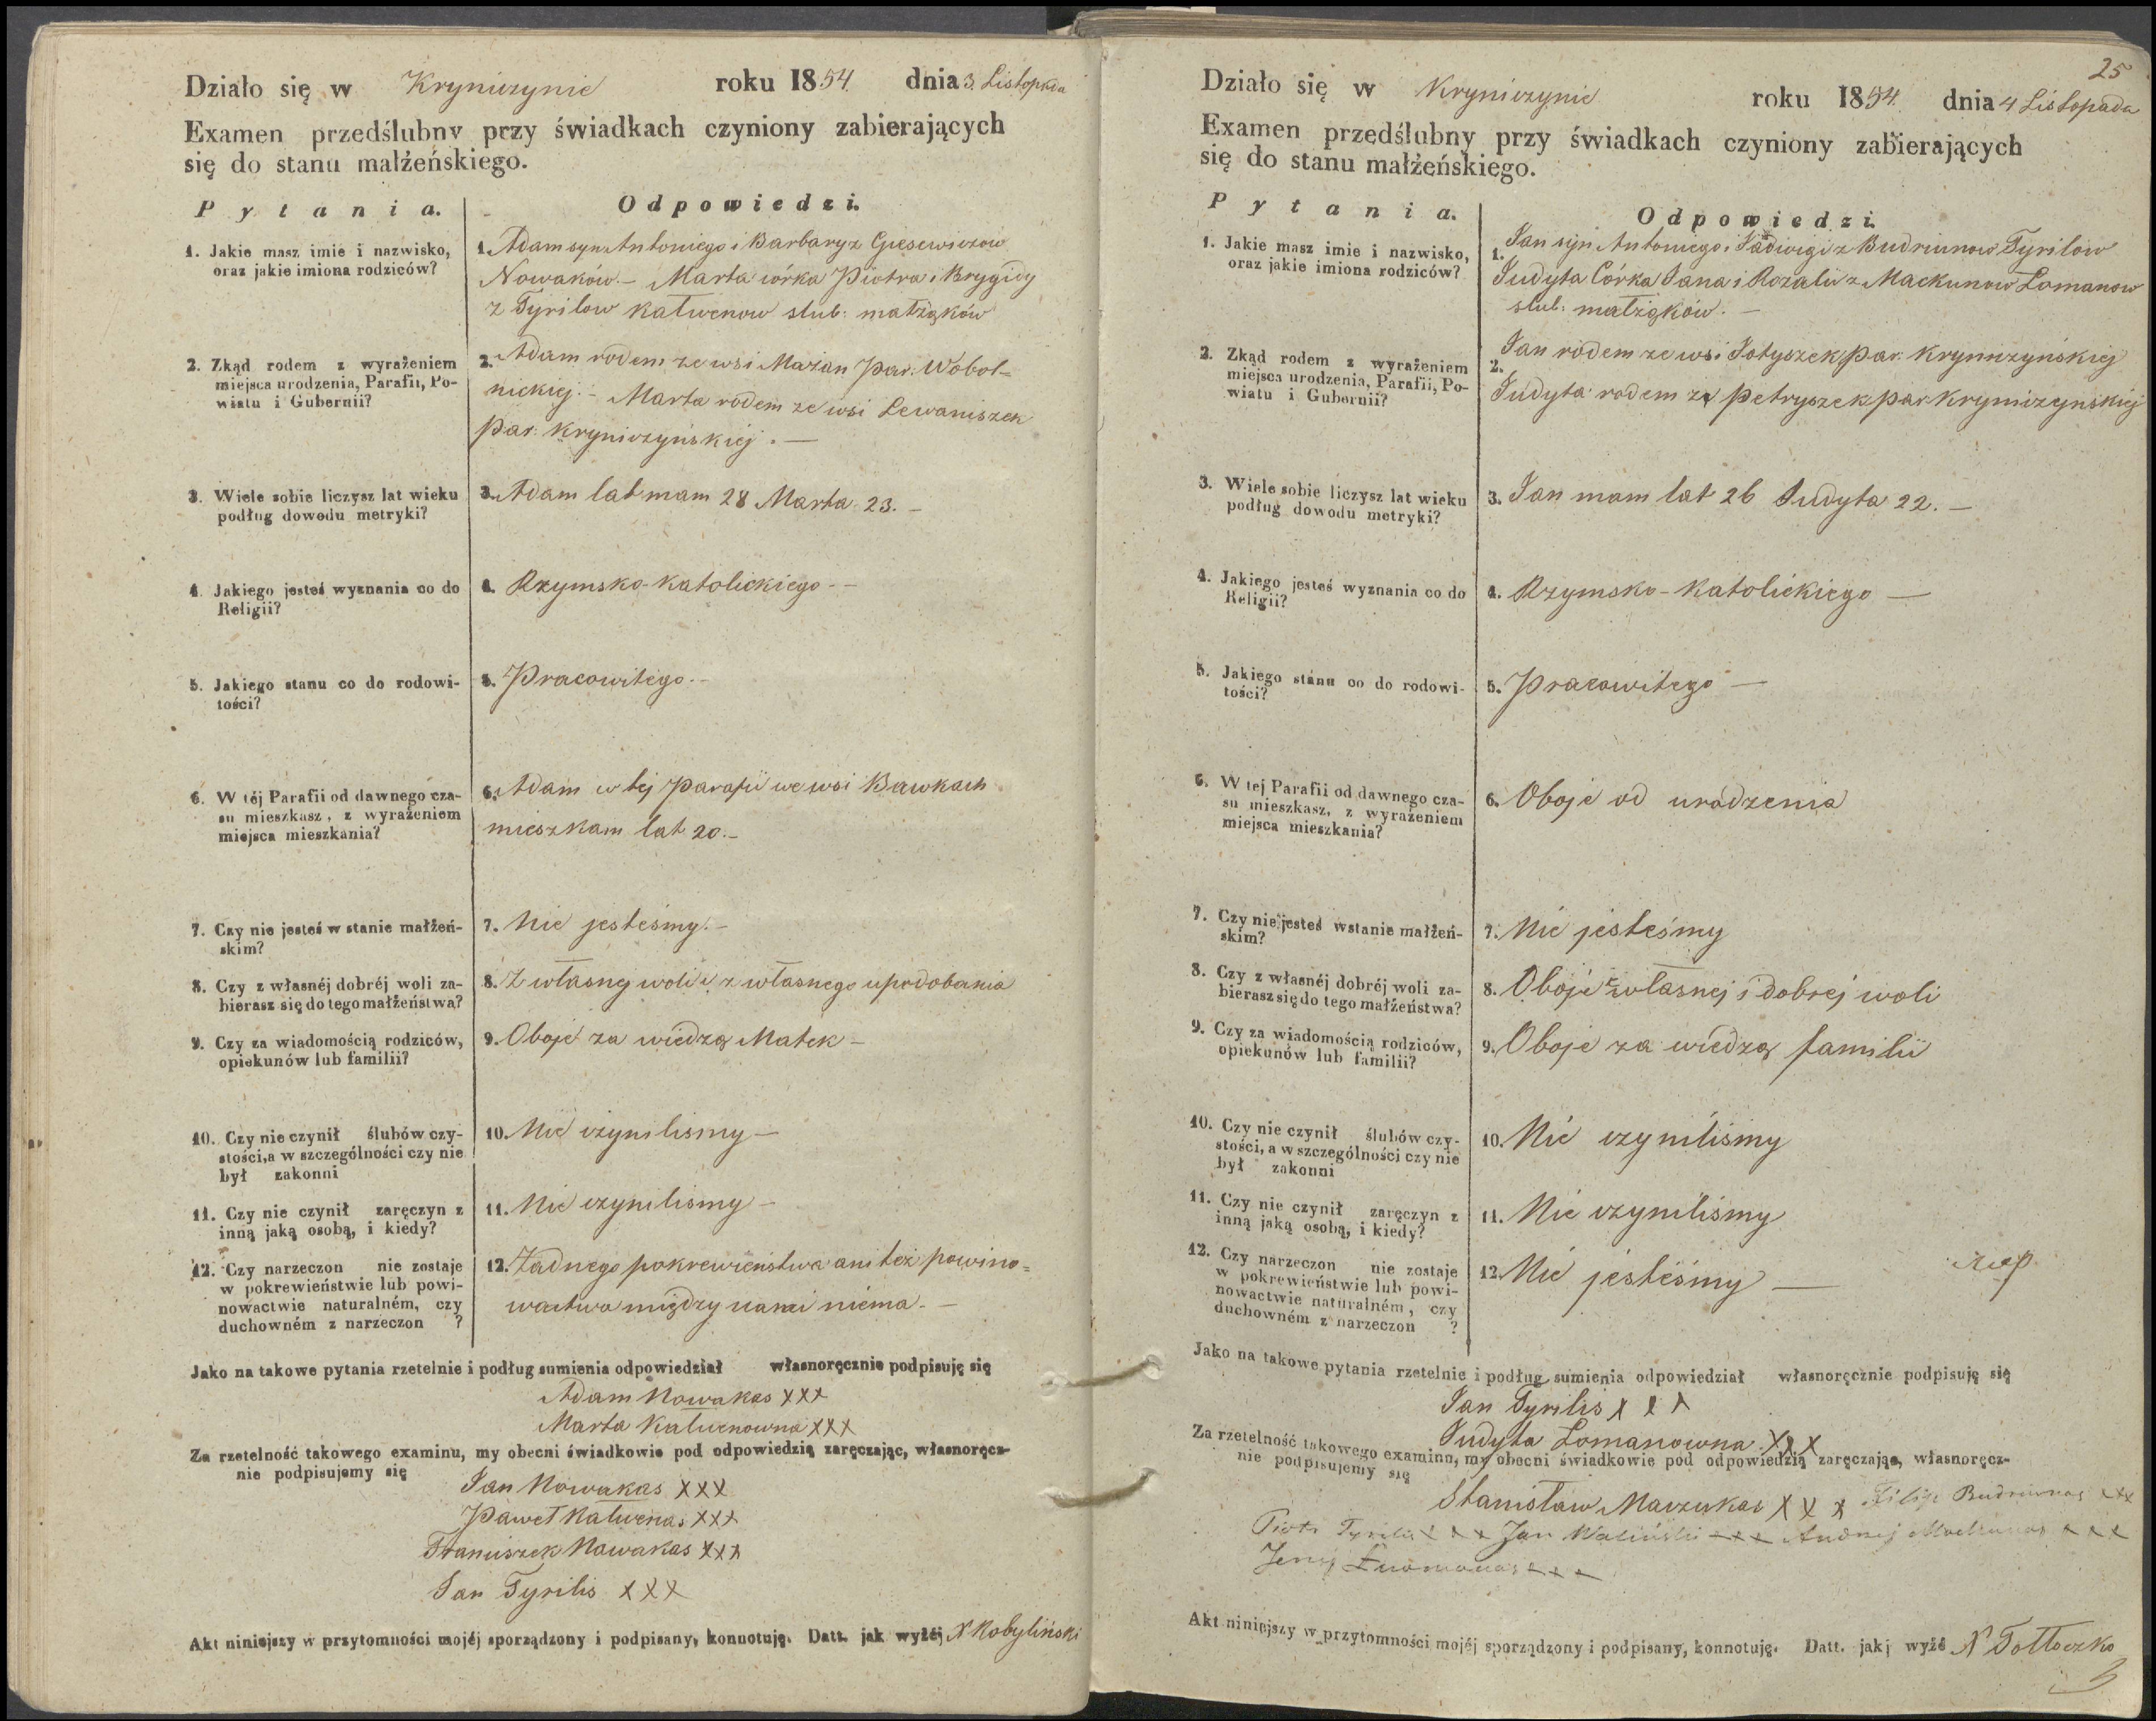 Działo się w Kryniczynie roku 1854 dnia 3 Listopada
Examen przedślubny przy świadkach czyniony zabierających
się do stanu małżeńskiego.
Pytania. Odpowiedzi.
1. Jakie masz imie i nazwisko,
oraz jakie imiona rodziców?
1. Adam syn Antoniego i Barbary z Giesewiczow
Nowaków. – Marta córka Piotra i Brygidy
z Tyrilow Katwenow slub: małżąków
2. Zkąd rodem z wyrażeniem
miejsca urodzenia, Parafii, Po-
wiatu i Gubernii?
2. Adam rodem ze wsi Mażan Par: Wobol=
nickiej. – Marta rodem ze wsi Lewaniszek
par: Kryniczyńskiej. —
3. Wiele sobie liczysz lat wieku
podług dowodu metryki?
3. Adam lat mam 28 Marta 23. –
4. Jakiego jesteś wyznania co do
Religii?
4. Rzymsko-katolickiego –
5. Jakiego stanu co do rodowi-
tości?
5. Pracowitego. –
6. W téj Parafii od dawnego cza-
su mieszkasz, z wyrażeniem
miejsca mieszkania?
6. Adam w tej parafii we wsi Bawkach
mieszkam lat 20. –
7. Czy nie jesteś w stanie małżeń-
skim?
7. Nie jesteśmy. –
8. Czy z własnéj dobréj woli za-
bierasz się do tego małżeństwa?
8. Z własnej woli i z własnego upodobania
9. Czy za wiadomością rodziców,
opiekunów lub familii?
9. Oboje za wiedzą Matek –
10. Czy nie czynił ślubów czy-
stości, a w szczególności czy nie
był zakonni
10. Nie czynilismy –
11. Czy nie czynił zaręczyn z
inną jaką osobą, i kiedy?
11. Nie czynilismy –
12. Czy narzeczon nie zostaje
w pokrewieństwie lub powi-
nowactwie naturalném, czy
duchowném z narzeczon ?
12. Żadnego pokrewieństwa ani też powino=
wactwa między nami niema. –
Jako na takowe pytania rzetelnie i podług sumienia odpowiedział własnoręcznie podpisuję się
Adam Nowakas XXX
Marta Katwenowna XXX
Za rzetelność takowego examinu, my obecni świadkowie pod odpowiedzią zaręczając, własnoręcz-
nie podpisujemy się
Jan Nowakas XXX
Paweł Katwenas XXX
Franciszek Nowakas XXX
Jan Tyrilis XXX
Akt niniejszy w przytomności mojéj sporządzony i podpisany, konnotuję. Datt. jak wyżéj X Kobyliński
25
Działo się w Kryniczynie roku 1854 dnia 4 Listopada
Examen przedślubny przy świadkach czyniony zabierających
się do stanu małżeńskiego.
Pytania. Odpowiedzi.
1. Jakie masz imie i nazwisko,
oraz jakie imiona rodziców?
1. Jan syn Antoniego i Jadwigi z Budriunow Tyrilow
Judyta Córka Jana i Rozalii z Mackunow Lomanow
slub: małżąków. –
2. Zkąd rodem z wyrażeniem
miejsca urodzenia, Parafii, Po-
wiatu i Gubernii?
2. Jan rodem ze wsi Jotyszek par: Kryniczyńskiej
Judyta rodem ze Petryszek par Kryniczyńskiej
3. Wiele sobie liczysz lat wieku
podług dowodu metryki?
3. Jan mam lat 26 Judyta 22. –
4. Jakiego jesteś wyznania co do
Religii?
4. Rzymsko-katolickiego —
5. Jakiego stanu co do rodowi-
tości?
5. Pracowitego —
6. W tej Parafii od dawnego cza-
su mieszkasz, z wyrażeniem
miejsca mieszkania?
6. Oboje od urodzenia
7. Czy nie jesteś wstanie małżeń-
skim?
7. Nie jesteśmy
8. Czy z własnéj dobréj woli za-
bierasz się do tego małżeństwa?
8. Oboje z własnej i dobrej woli
9. Czy za wiadomością rodziców,
opiekunów lub familii?
9. Oboje za wiedzą familii
10. Czy nie czynił ślubów czy-
stości, a w szczególności czy nie
był zakonni
10. Nie czyniliśmy
11. Czy nie czynił zaręczyn z
inną jaką osobą, i kiedy?
11. Nie czyniliśmy
12. Czy narzeczon nie zostaje
w pokrewieństwie lub powi-
nowactwie naturalném, czy
duchowném z narzeczon ?
12. Nie jesteśmy —
Jako na takowe pytania rzetelnie i podług sumienia odpowiedział własnoręcznie podpisuję się
Jan Tyrilis XXX
Judyta Lomanowna XXX
Za rzetelność takowego examinu, my obecni świadkowie pod odpowiedzią zaręczając, własnoręcz-
nie podpisujemy się
Stanisław Maczukas XXX Filip Budriunas XXX
Piotr Tyrilis XXX Jan Waliński XXX Andrzej Mackunas XXX
Jerzy XXX
Akt niniejszy w przytomności mojéj sporządzony i podpisany, konnotuję. Datt. jakj wyżé X Tołłoczko